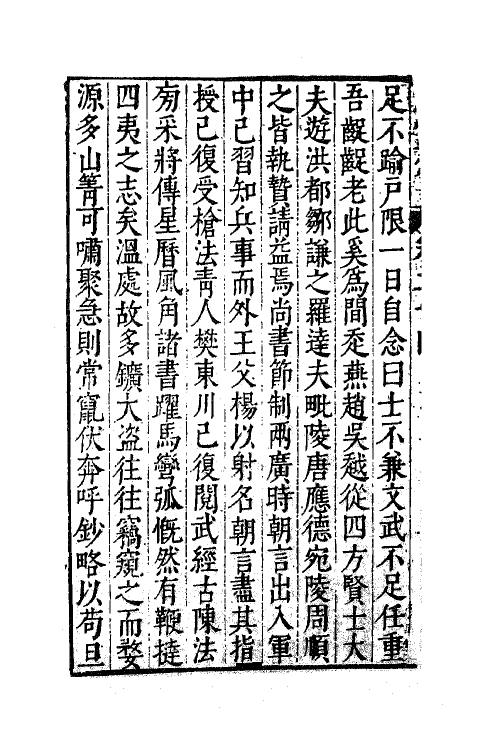 足不踰戸限一日自念曰士不兼文武不足任重
吾齪齪老此奚為間走燕趙吳越從四方賢士大
夫遊洪都鄒謙之羅達夫毗陵唐應德宛陵周順
之皆執贄請益焉尚書節制兩廣時朝言出入軍
中已習知兵事而外王父楊以射名朝言盡其指
授已復受槍法青人樊東川已復閱武經古陳法
旁采將傳星曆風角諸書躍馬彎弧慨然有鞭撻
四夷之志矣溫處故多鑛大盗往往竊窺之而婺
源多山箐可嘯聚急則常竄伏奔呼鈔略以茍旦